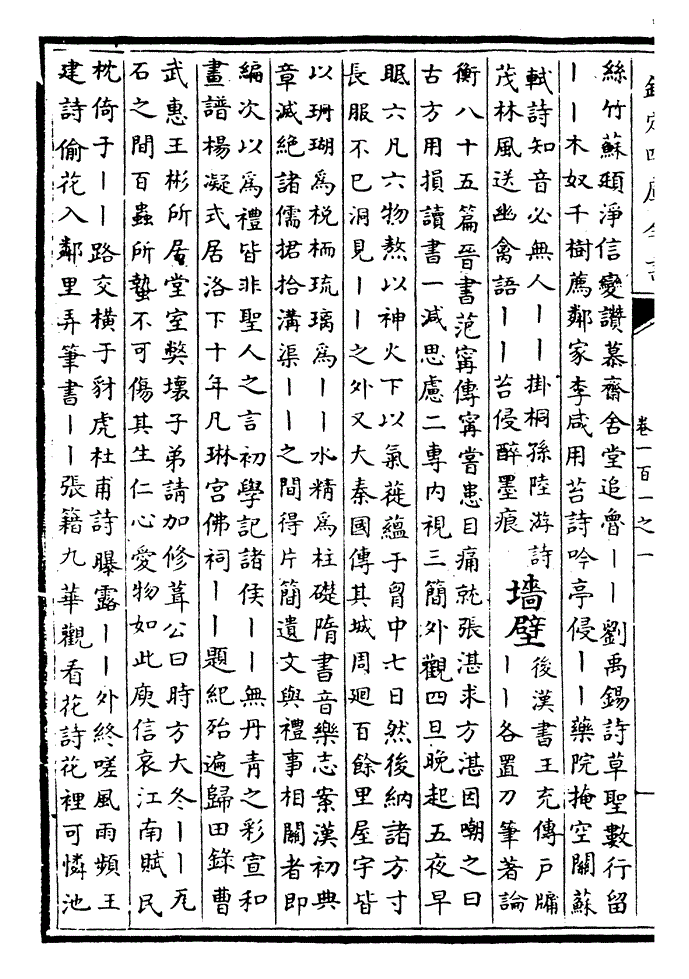 欽定四庫全書
卷一百一之一
一
絲竹蘇頲淨信變讚慕齋舍堂追魯丨丨劉禹錫詩草聖數行留
丨丨木奴千樹薦鄰家李咸用苔詩吟亭侵丨丨藥院掩空關蘇
軾詩知音必無人丨丨掛桐孫陸游詩
茂林風送幽禽語丨丨苔侵醉墨痕
墻壁
後漢書王充傳戸牖
丨丨各置刀筆著論
衡八十五篇晉書范甯傳甯嘗患目痛就張湛求方湛因嘲之曰
古方用損讀書一減思慮二專內視三簡外觀四旦晚起五夜早
眠六凡六物熬以神火下以氣蓰蘊于胷中七日然後納諸方寸
長服不已洞見丨丨之外又大秦國傳其城周迴百餘里屋宇皆
以珊瑚為梲栭琉璃為丨丨水精為柱礎隋書音樂志案漢初典
章滅絕諸儒捃拾溝渠丨丨之間得片簡遺文與禮事相關者即
編次以為禮皆非聖人之言初學記諸侯丨丨無丹青之彩宣和
畫譜楊凝式居洛下十年凡琳宮佛祠丨丨題紀殆遍歸田錄曹
武惠王彬所居堂室弊壞子弟請加修葺公曰時方大冬丨丨瓦
石之間百蟲所蟄不可傷其生仁心愛物如此庾信哀江南賦民
枕倚于丨丨路交橫于豺虎杜甫詩曝露丨丨外終嗟風雨頻王
建詩偷花入鄰里弄筆書丨丨張籍九華觀看花詩花裡可憐池